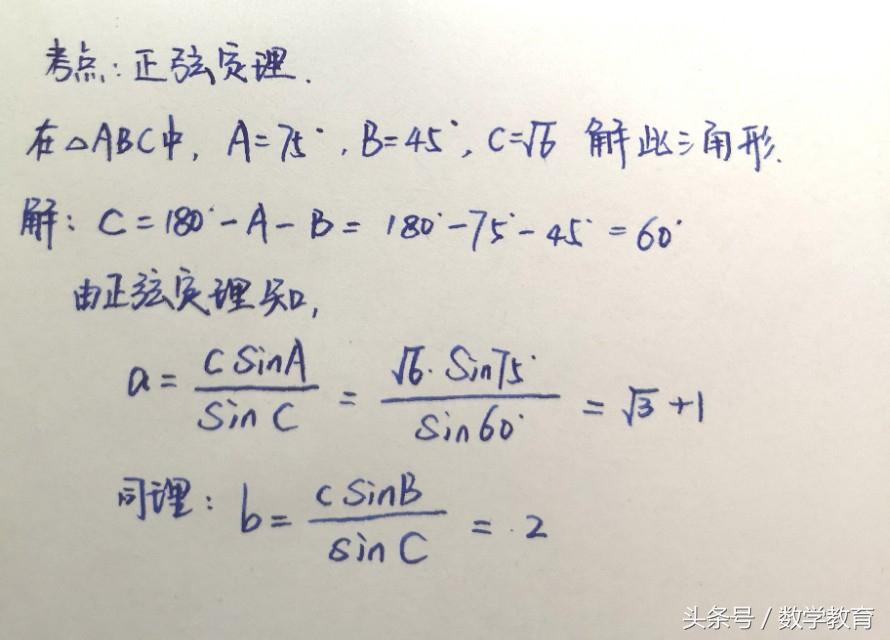 考点：正弦定理.
在△ABC中, A=75°, B=45°, C=√6 解此三角形.
解：C=180°-A-B=180°-75°-45°=60°
由正弦定理知,
a = c sinA / sin C = √6·sin75° / sin60° = √3+1
同理：b = c sinB / sin C = 2
头条号 / 数学教育